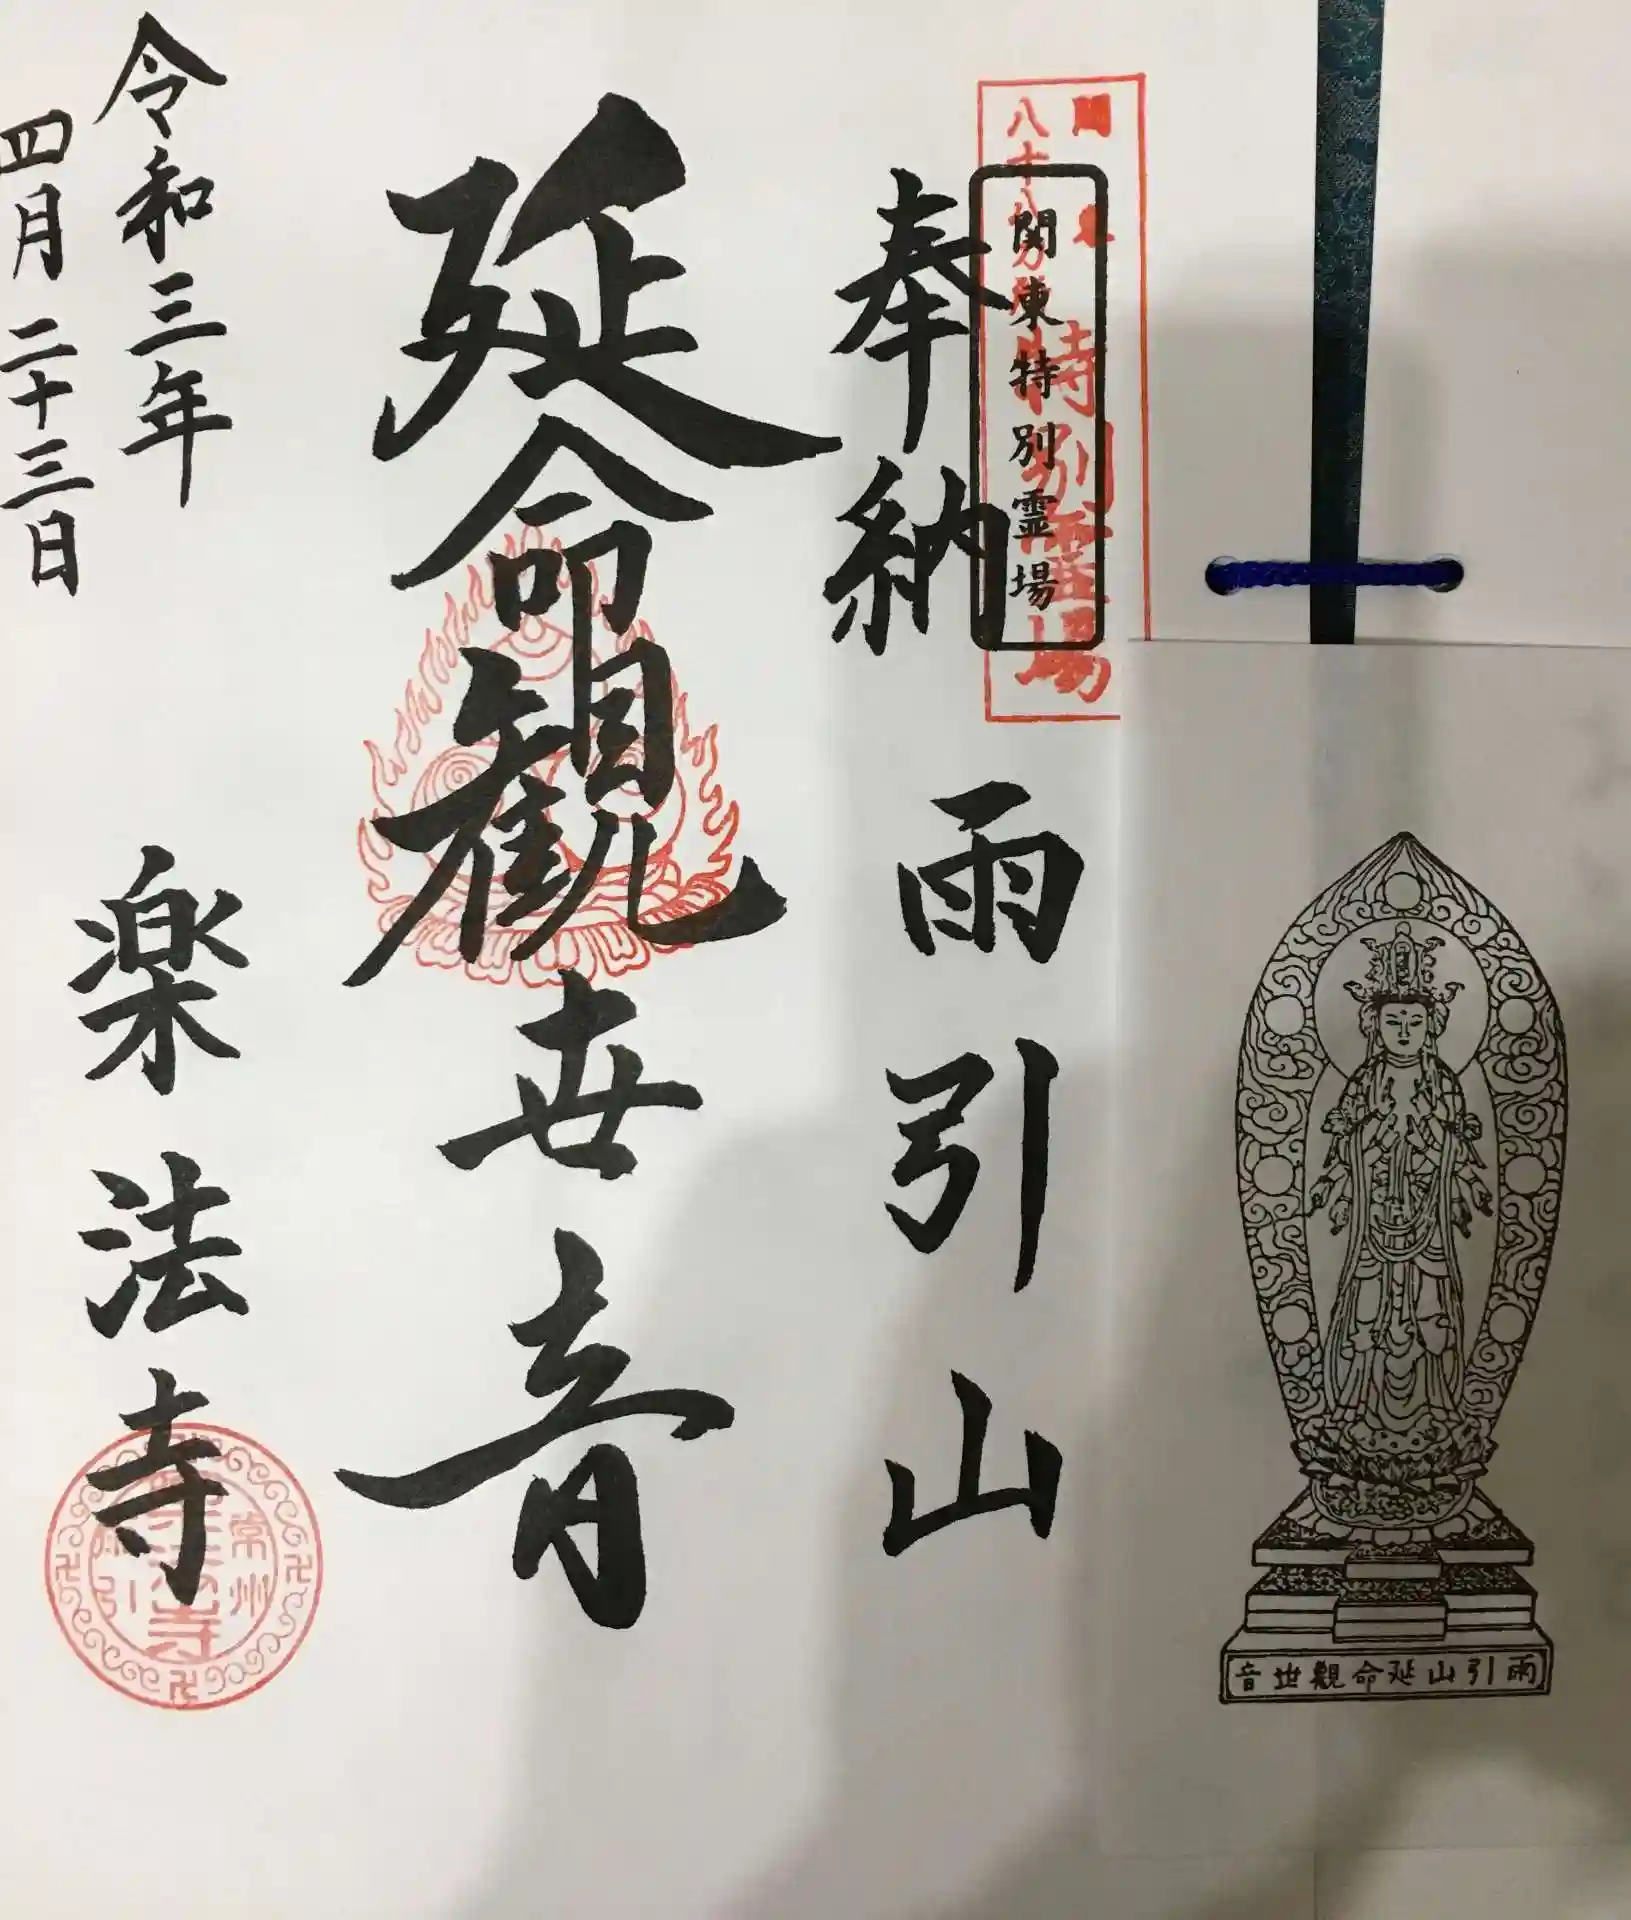 奉納
雨引山
関東特別霊場
関東
八十八カ所
特別霊場
延命観世音
令和三年
四月二十三日
楽法寺
常州
雨引
楽法寺
雨引山延命観世音